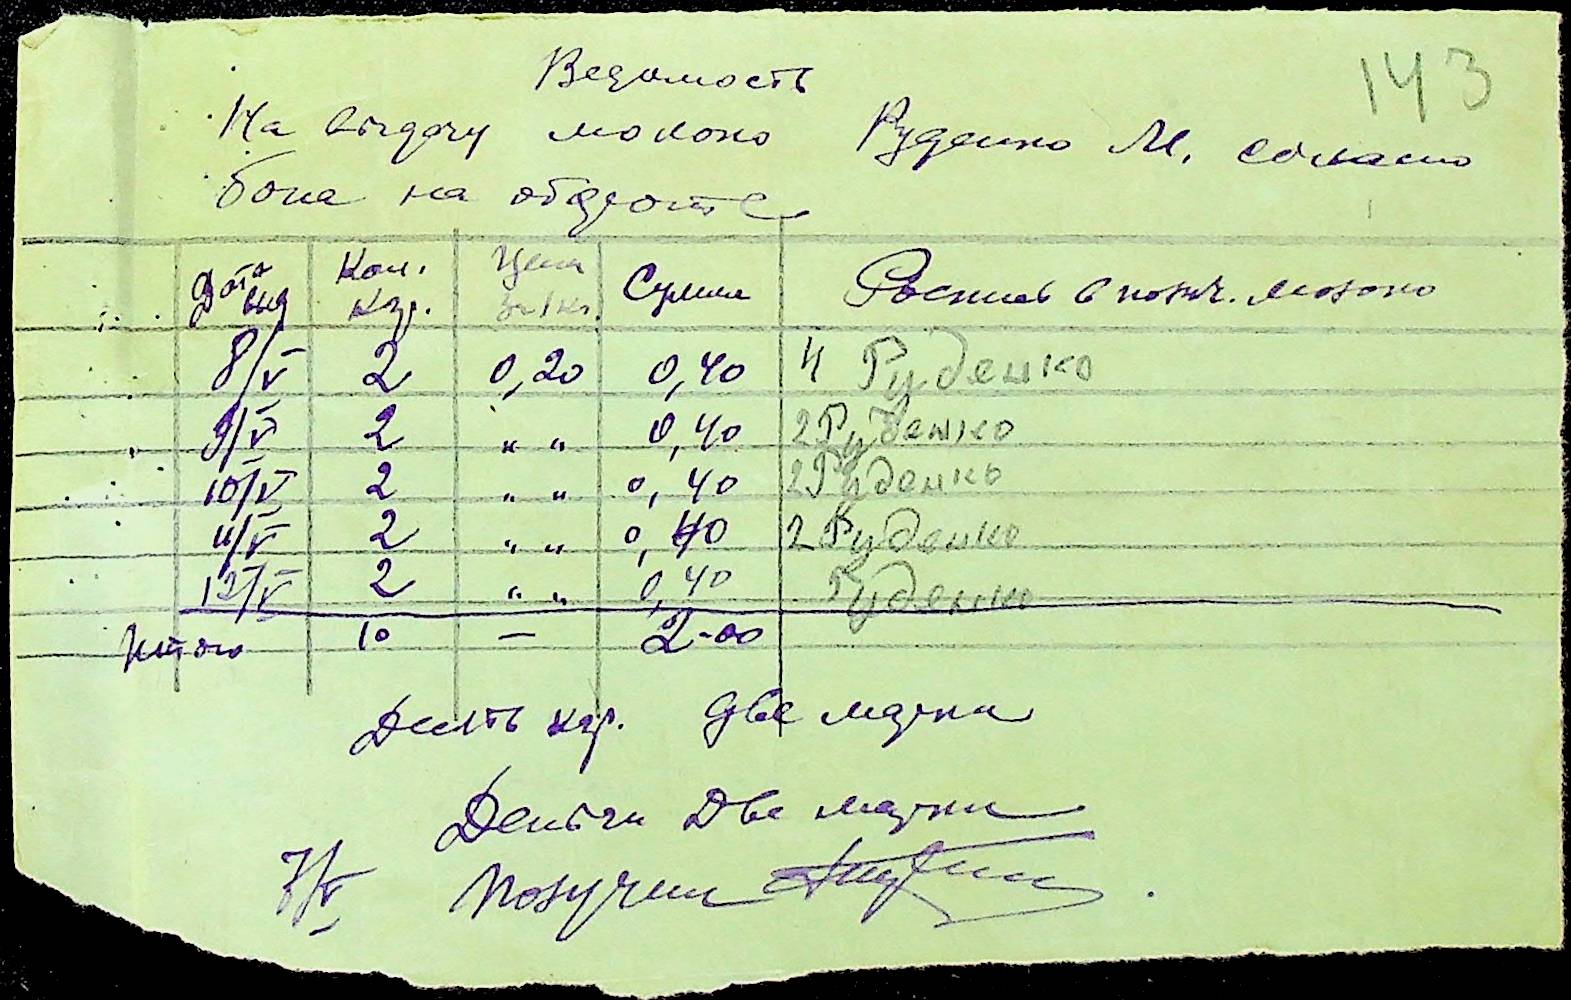 143
Ведомость
На выдачу молоко Руденко М. согласно
бона на обороте
Дата выд Кол. кгр. Цена за 1 кг. Сумма Роспись в получ. молоко
8/V 2 0,20 0,40 4 Руденко
9/V 2 " " 0,40 2 Руденко
10/V 2 " " 0,40 2 Руденко
11/V 2 " " 0,40 2 Руденко
12/V 2 " " 0,40 Руденко
Итого 10 — 2-00
Десять кгр. две марки
Деньги Две марки
7/V Получил